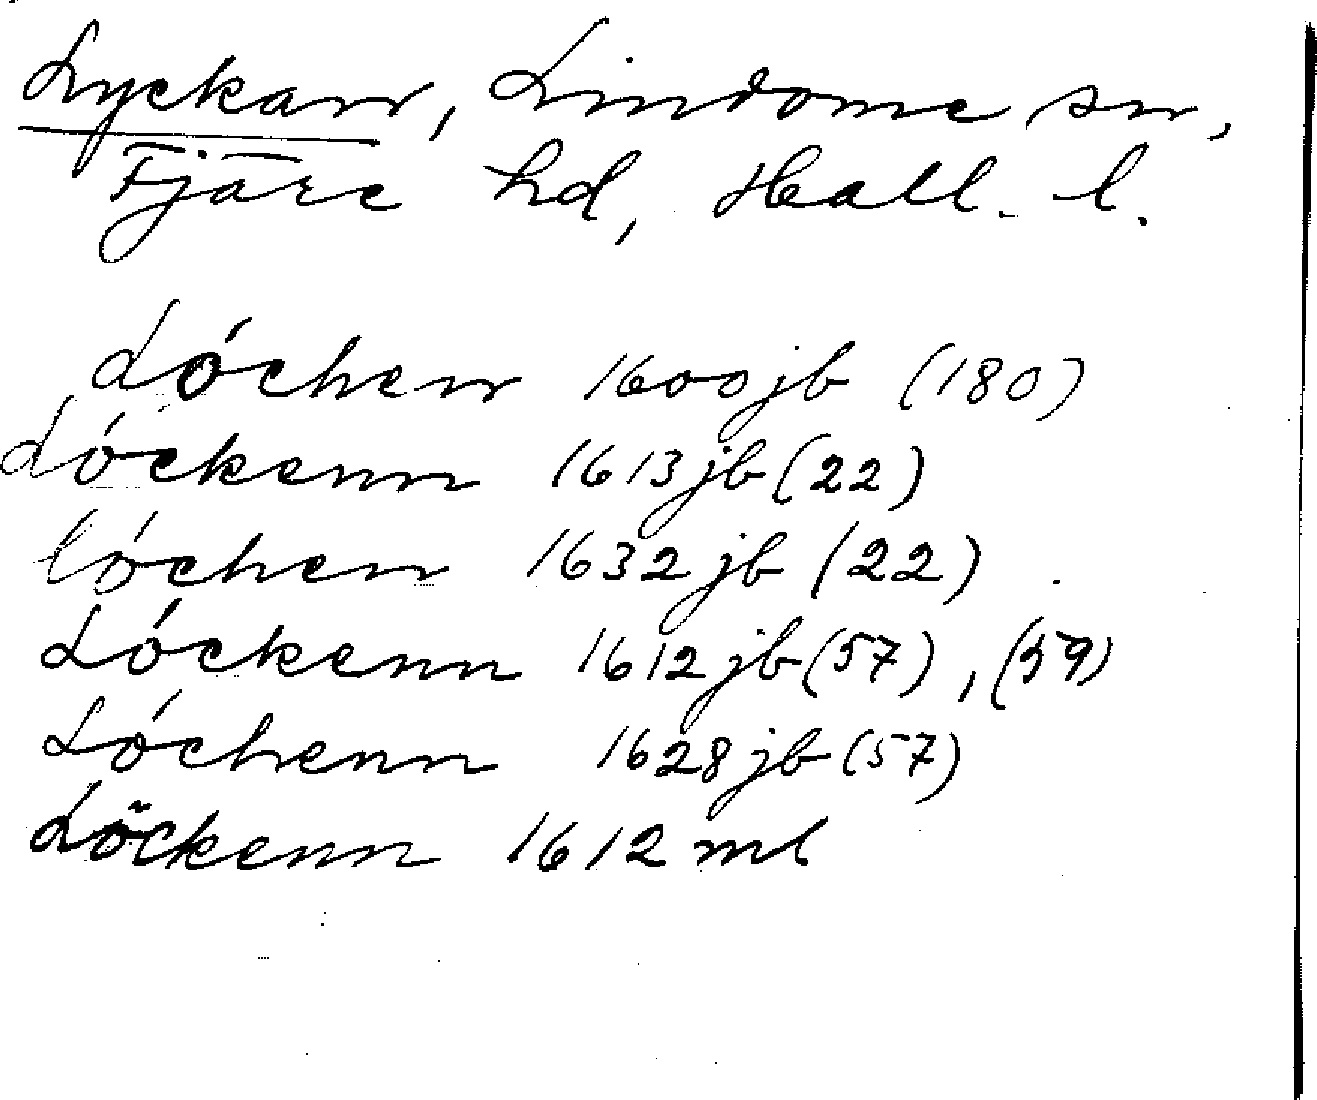 Lyckan, Lindome sn,
Fjäre hd, Hall. l.
Lóchen 1600 jb (180)
Lóckenn 1613 jb (22)
lóchen 1632 jb (22)
Lóckenn 1612 jb (57), (59)
Lóchenn 1628 jb (57)
Löckenn 1612 ml